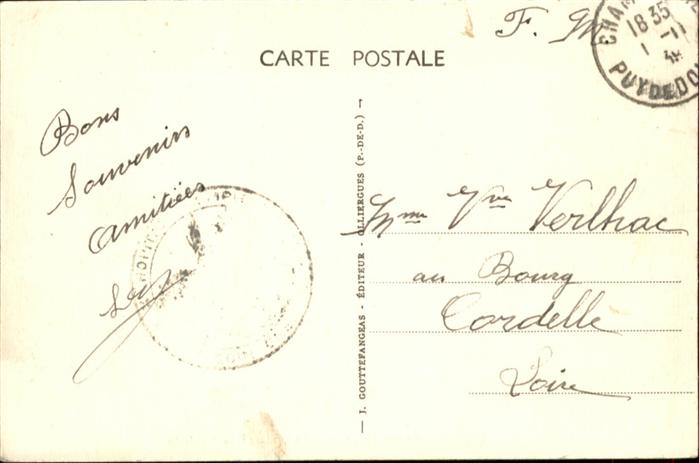 CARTE POSTALE
F. M
CHAM
18 35
1 -11
PUY DE DO
Bons
Souvenirs
Amitiées
— J. GOUTTEFANGEAS - ÉDITEUR - OLLIERGUES (P.-DE-D.) —
Mme Vve Verlhac
au Bourg
Cordelle
Loire